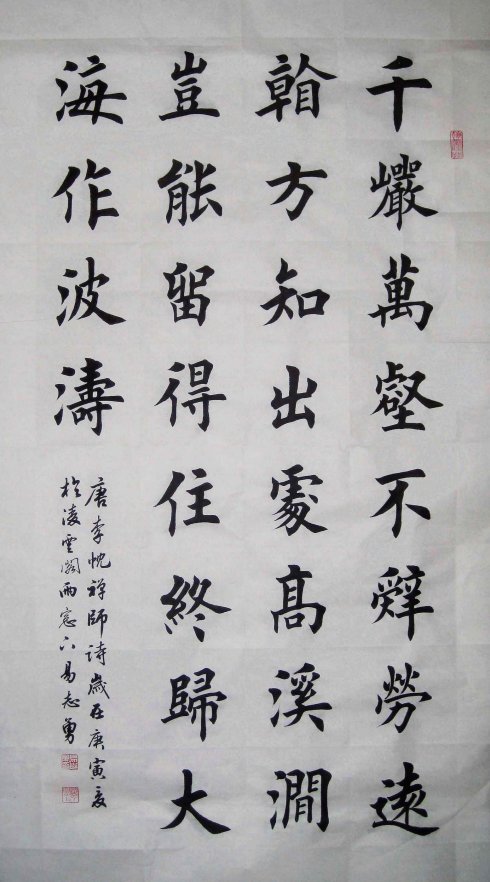 千巖萬壑不辤勞遠
䁂方知出處高溪澗
豈能留得住終歸大
海作波濤
唐李忱禅師詩歲在庚寅夏
於淩雲閣雨窓下易志勇